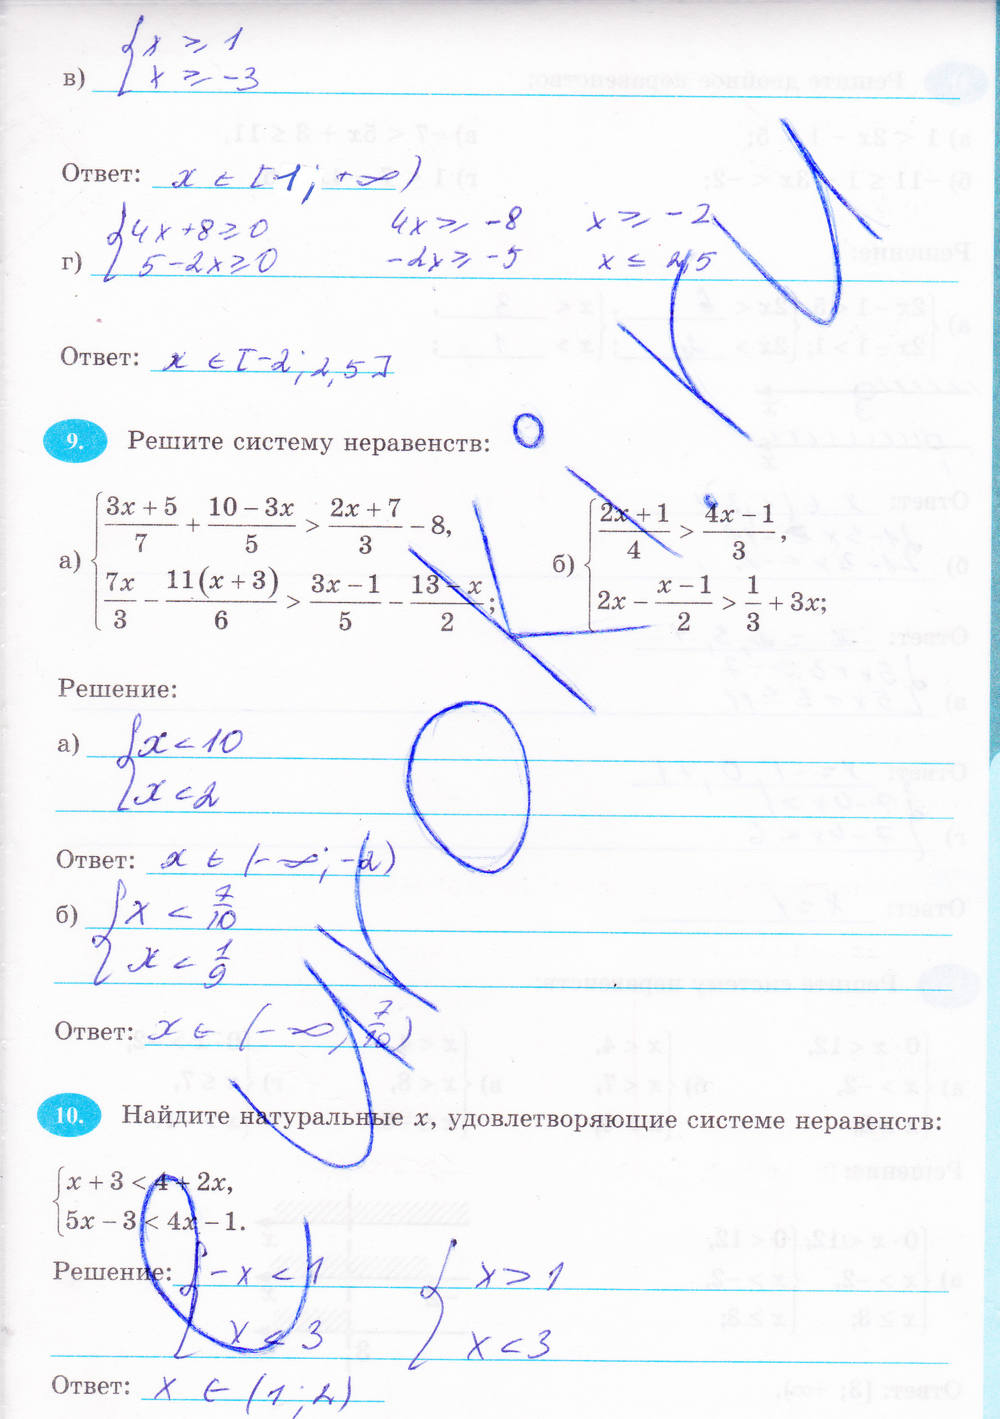 {x ≥ 1
в) x ≥ -3
Ответ: x ∈ [-1; +∞)
{4x+8≥0 4x ≥ -8 x ≥ -2
г) 5-2x≥0 -2x ≥ -5 x ≤ 2,5
Ответ: x ∈ [-2; 2,5]
9. Решите систему неравенств:
а) {(3x + 5)/7 + (10 – 3x)/5 > (2x + 7)/3 – 8,
7x/3 – 11(x + 3)/6 > (3x – 1)/5 – (13 – x)/2;
б) {(2x + 1)/4 > (4x – 1)/3,
2x – (x – 1)/2 > 1/3 + 3x;
Решение:
а) {x < 10
x < 2
Ответ: x ∈ (-∞; -2)
б) {x < 7/10
x < 1/9
Ответ: x ∈ (-∞; 7/10)
10. Найдите натуральные x, удовлетворяющие системе неравенств:
{x + 3 < 4 + 2x,
5x – 3 < 4x – 1.
Решение: {-x < 1 {x > 1
x < 3 x < 3
Ответ: x ∈ (1; 2)